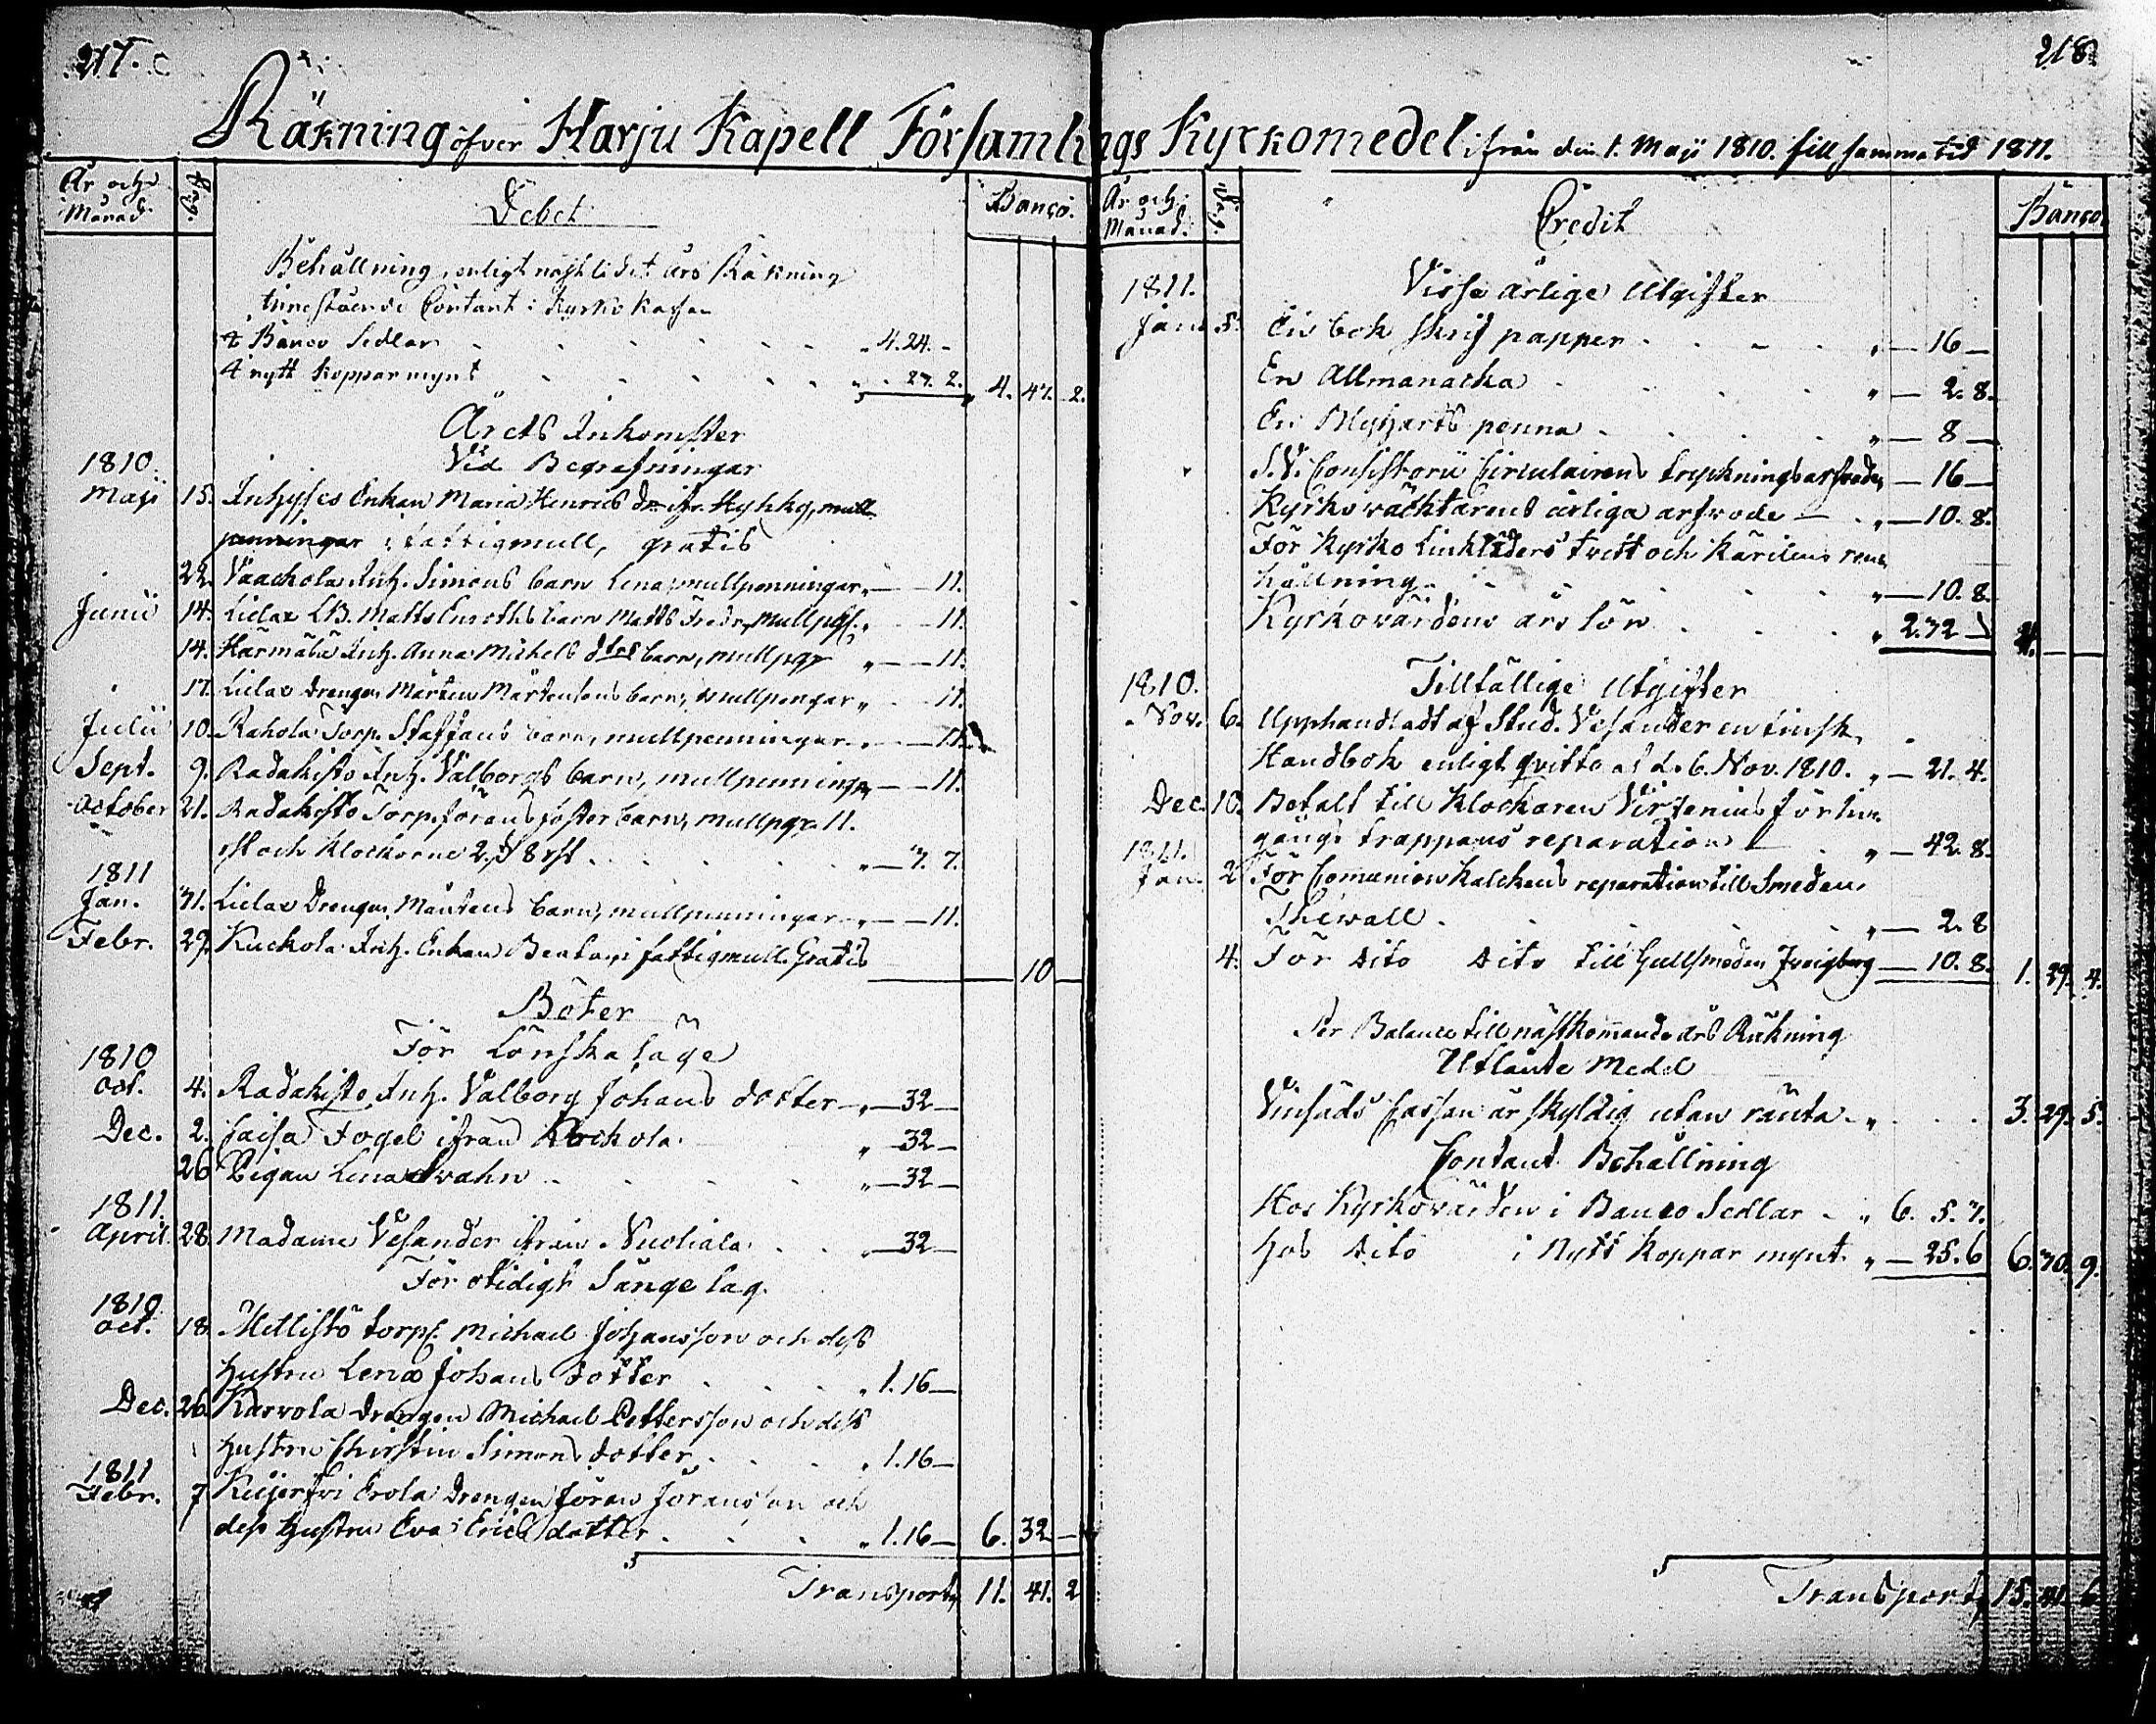 217.
Räkning öfver Harju Kapell Församlings Kyrkomedel ifrån den 1. Maji 1810. till samma tid 1811.
År och Månad
Dag.
Debet
Banco.
Behållning, enligt nästledet års Räkning
innestående Contant i Kyrko Kassan
i Banco Sedlar " 4. 24. -
i nytt Koppar mynt " - 27. 2. 4. 47. 2.
Årets Inkomster
Vid Begrafningar
1810.
Maji 15. Inhyses Enkan Maria Henrics dr ifr. Hyhky, mull
penningar i fattigmull, gratis
22. Vaachola Inh. Simons barn Lena, mullpenningar " — 11.
Junii 14. Liclax Matts barn Matts Fredr. mullpgr. " - 11.
14. Härmälä Inh. Anna Michels dtrs barn, mullpgr " — 11.
17. Liclax drengen Mårten Mårtensons barn, mullpengar " - 11.
Julii 10. Rahola Torp. Staffans barn, mullpenningar " — 11.
Sept. 9. Radakisto Inh. Valborgs barn, mullpenningar — 11.
October 21. Radakisto Torp. Jörans foster barn, mullpgr. 11.
sk och klockorne 2 ß 8 rst " — 7. 7.
1811
Jan. 31. Liclax Drengen Mårtens barn, mullpenningar " — 11.
Febr. 29. Kuckola Inh. Enkan Beata, i fattigmull. Gratis
— 10 —
Böter
För Lönskaläge
1810
Oct. 4. Radakisto Inh. Valborg Johans dotter " — 32 —
Dec. 2. Caisa Fogel ifrån Kockola " — 32 —
26 Pigan Lena Svahn " — 32 —
1811.
April. 28. Madame Vesander ifrån Nuoliala " — 32 —
För otidigt Sängelag.
1810
Oct. 18. Mettistö torp. Michael Johansson och dess
hustru Lena Johans dotter " 1. 16 —
Dec. 26. Karvola drengen Michael Pettersson och dess
hustru Christin Simons dotter " 1. 16 —
1811
Febr. 7 Kiijerfvi Erola Drengen Jöran Göransson och
dess hustru Eva Erics dotter " 1. 16 — 6. 32 —
Transport 11. 41. 2
218
År och Månad.
Dag.
Credit
Banco
1811.
Visse årlige Utgifter
Jan. 5. En bok skrif papper " — 16 —
En Allmanacka " — 2. 8.
En Blyharts penna " — 8 —
S. V. Consistorii Circulairens tryckningsarfvode " — 16 —
Kyrkovächtarens årliga arfvode — " — 10. 8.
För Kyrko Linkläders tvätt och Kärilens ren
hållning " — 10. 8.
Kyrkovärdens års lön " 2. 32 — 4. — —
1810.
Tillfällige Utgifter
Nov. 6. Upphandladt af Stud. Vesander en finsk
Handbok enligt qvitto af d. 6. Nov. 1810. " — 21. 4.
Dec. 10. Betalt till Klockaren Virtenius för in
gångs trappans reparation " — 42. 8.
1811.
Jan. 2. För Comunion Kalckens reparation till Smeden
Thewall " — 2. 8
4. För dito dito till Gullsmeden — 10. 8. 1. 29. 4.
Per Balance till nästkommande års Räkning
Utlånte Medel
Vinsäds Cassan är skyldig utan ränta " 3. 29. 5.
Contant Behållning
Hos Kyrkovärden i Banco Sedlar " 6. 5. 7.
Hos dito i Nytt Koppar mynt " — 25. 6 6. 30. 9.
Transport 15. 41. 6